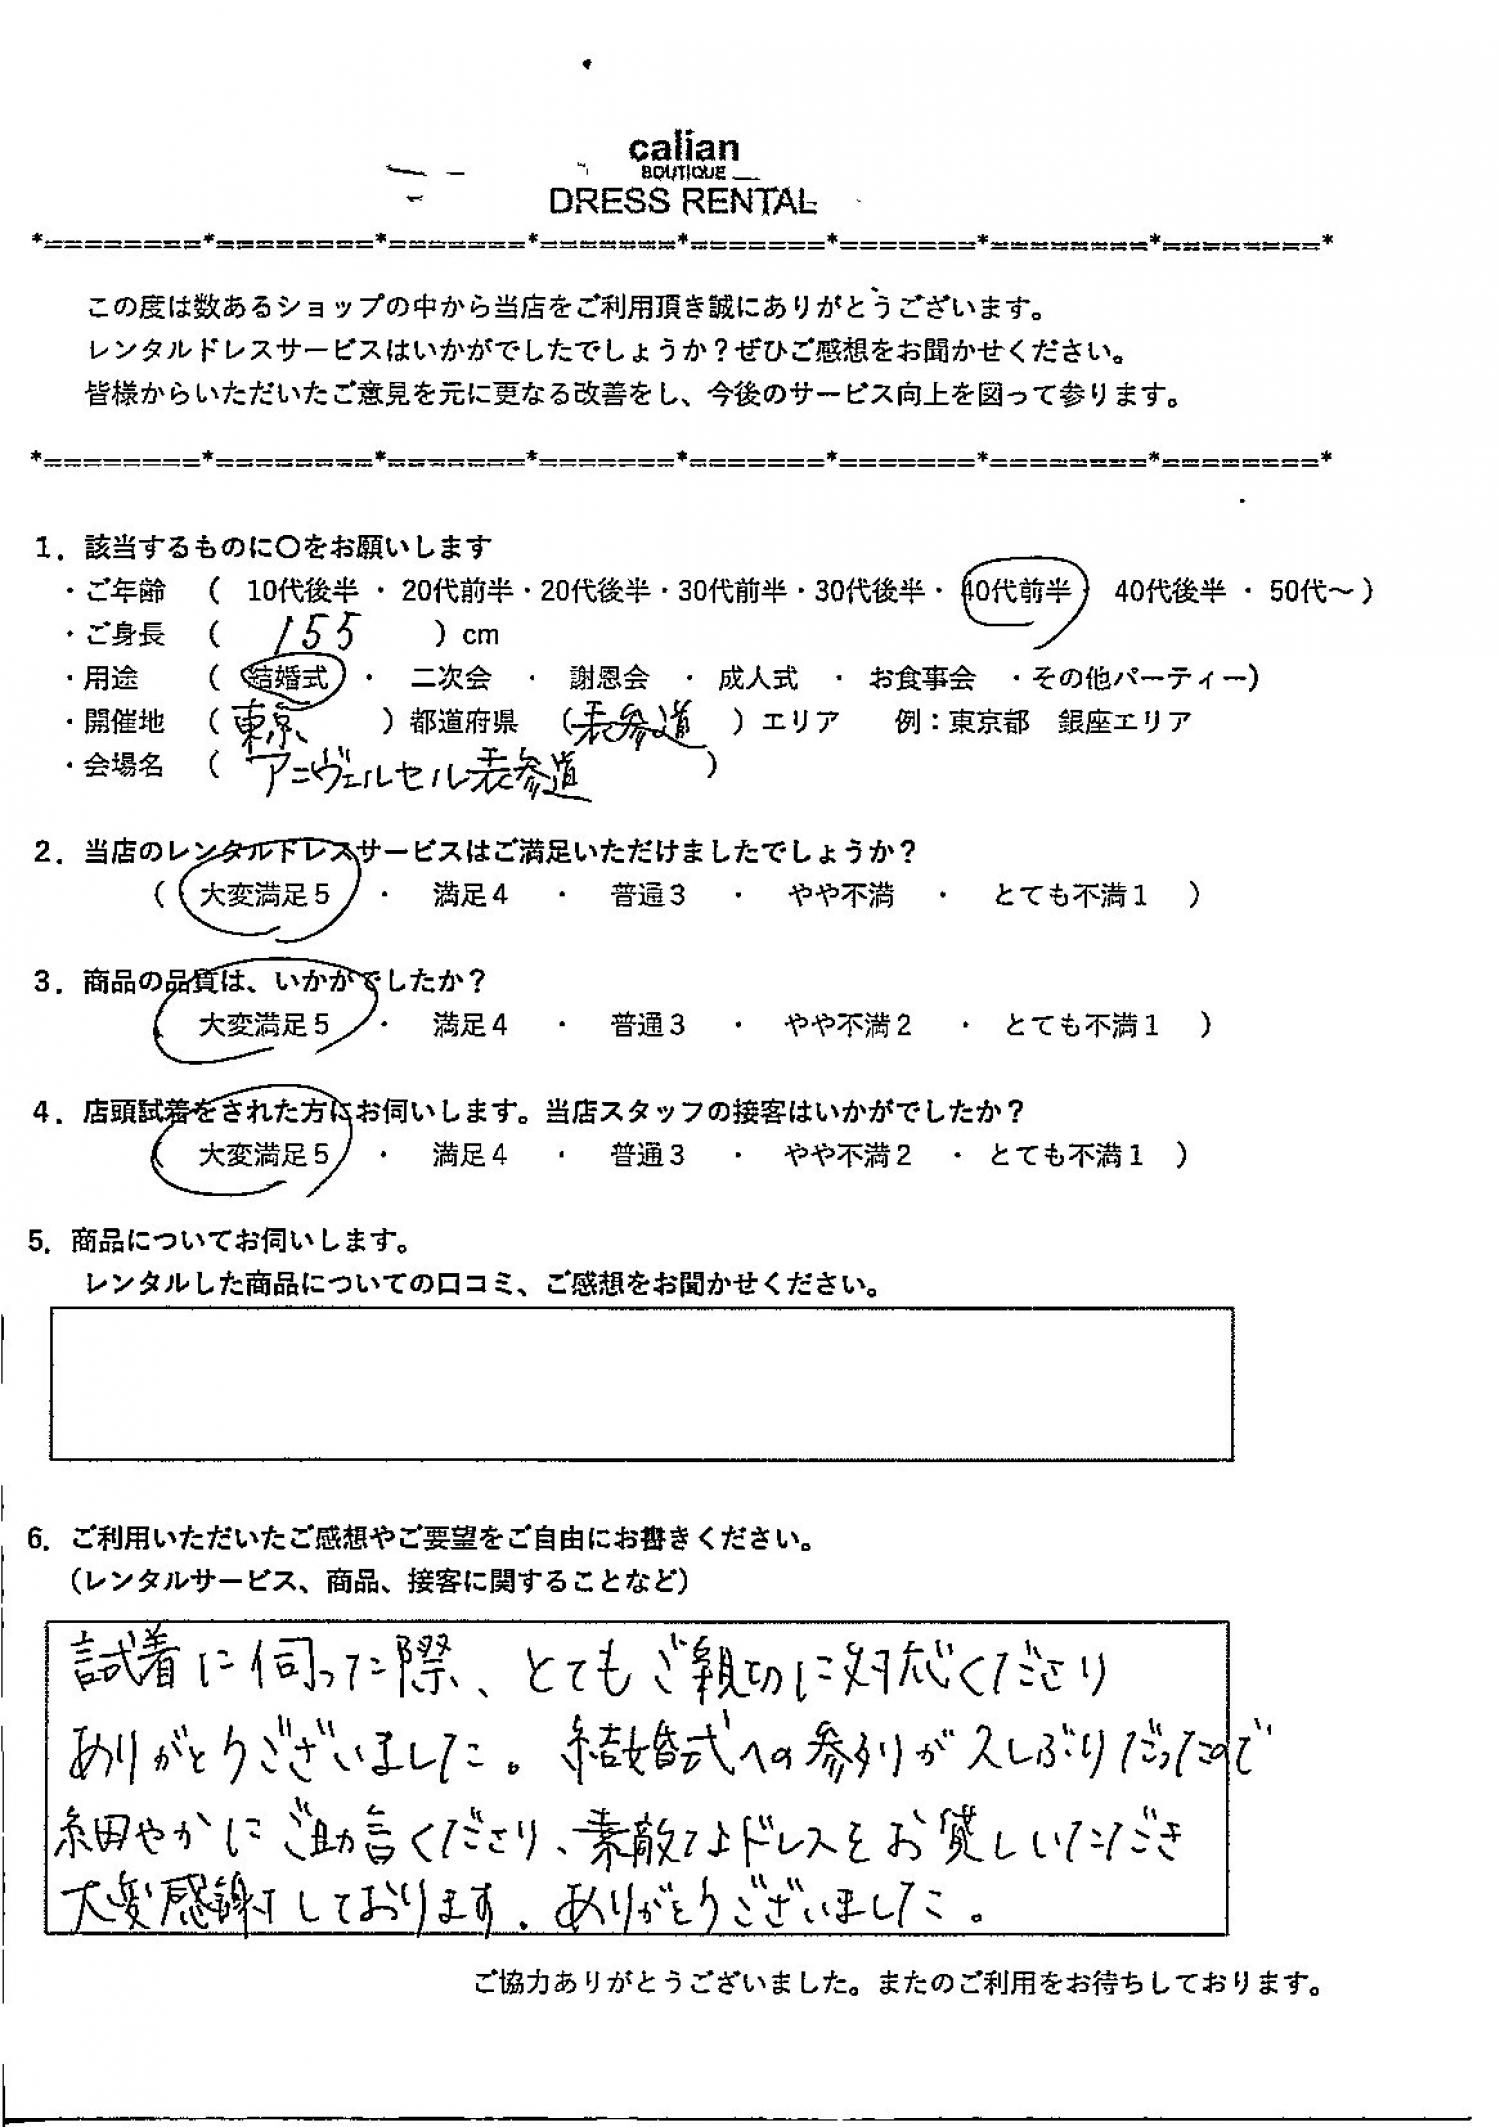 calian
BOUTIQUE
DRESS RENTAL
*========*========*=======*=======*=======*=======*========*========*
この度は数あるショップの中から当店をご利用頂き誠にありがとうございます。
レンタルドレスサービスはいかがでしたでしょうか？ぜひご感想をお聞かせください。
皆様からいただいたご意見を元に更なる改善をし、今後のサービス向上を図って参ります。
*========*========*=======*=======*=======*=======*========*========*
1．該当するものに〇をお願いします
・ご年齢 （ 10代後半 ・ 20代前半・20代後半・30代前半・30代後半・ 40代前半 40代後半 ・ 50代～ ）
・ご身長 （ 155 ）cm
・用途 （ 結婚式 ・ 二次会 ・ 謝恩会 ・ 成人式 ・ お食事会 ・その他パーティー）
・開催地 （ 東京 ）都道府県 （表参道 ）エリア 例：東京都 銀座エリア
・会場名 （ アニヴェルセル表参道 ）
2．当店のレンタルドレスサービスはご満足いただけましたでしょうか？
（ 大変満足５ ・ 満足４ ・ 普通３ ・ やや不満 ・ とても不満１ ）
3．商品の品質は、いかがでしたか？
（ 大変満足５ ・ 満足４ ・ 普通３ ・ やや不満２ ・ とても不満１ ）
4．店頭試着をされた方にお伺いします。当店スタッフの接客はいかがでしたか？
（ 大変満足５ ・ 満足４ ・ 普通３ ・ やや不満２ ・ とても不満１ ）
5．商品についてお伺いします。
レンタルした商品についての口コミ、ご感想をお聞かせください。
6．ご利用いただいたご感想やご要望をご自由にお書きください。
（レンタルサービス、商品、接客に関することなど）
試着に伺った際、とてもご親切に対応くださり
ありがとうございました。結婚式への参列が久しぶりだったので
細やかにご助言くださり、素敵なドレスをお貸しいただき
大変感謝しております。ありがとうございました。
ご協力ありがとうございました。またのご利用をお待ちしております。